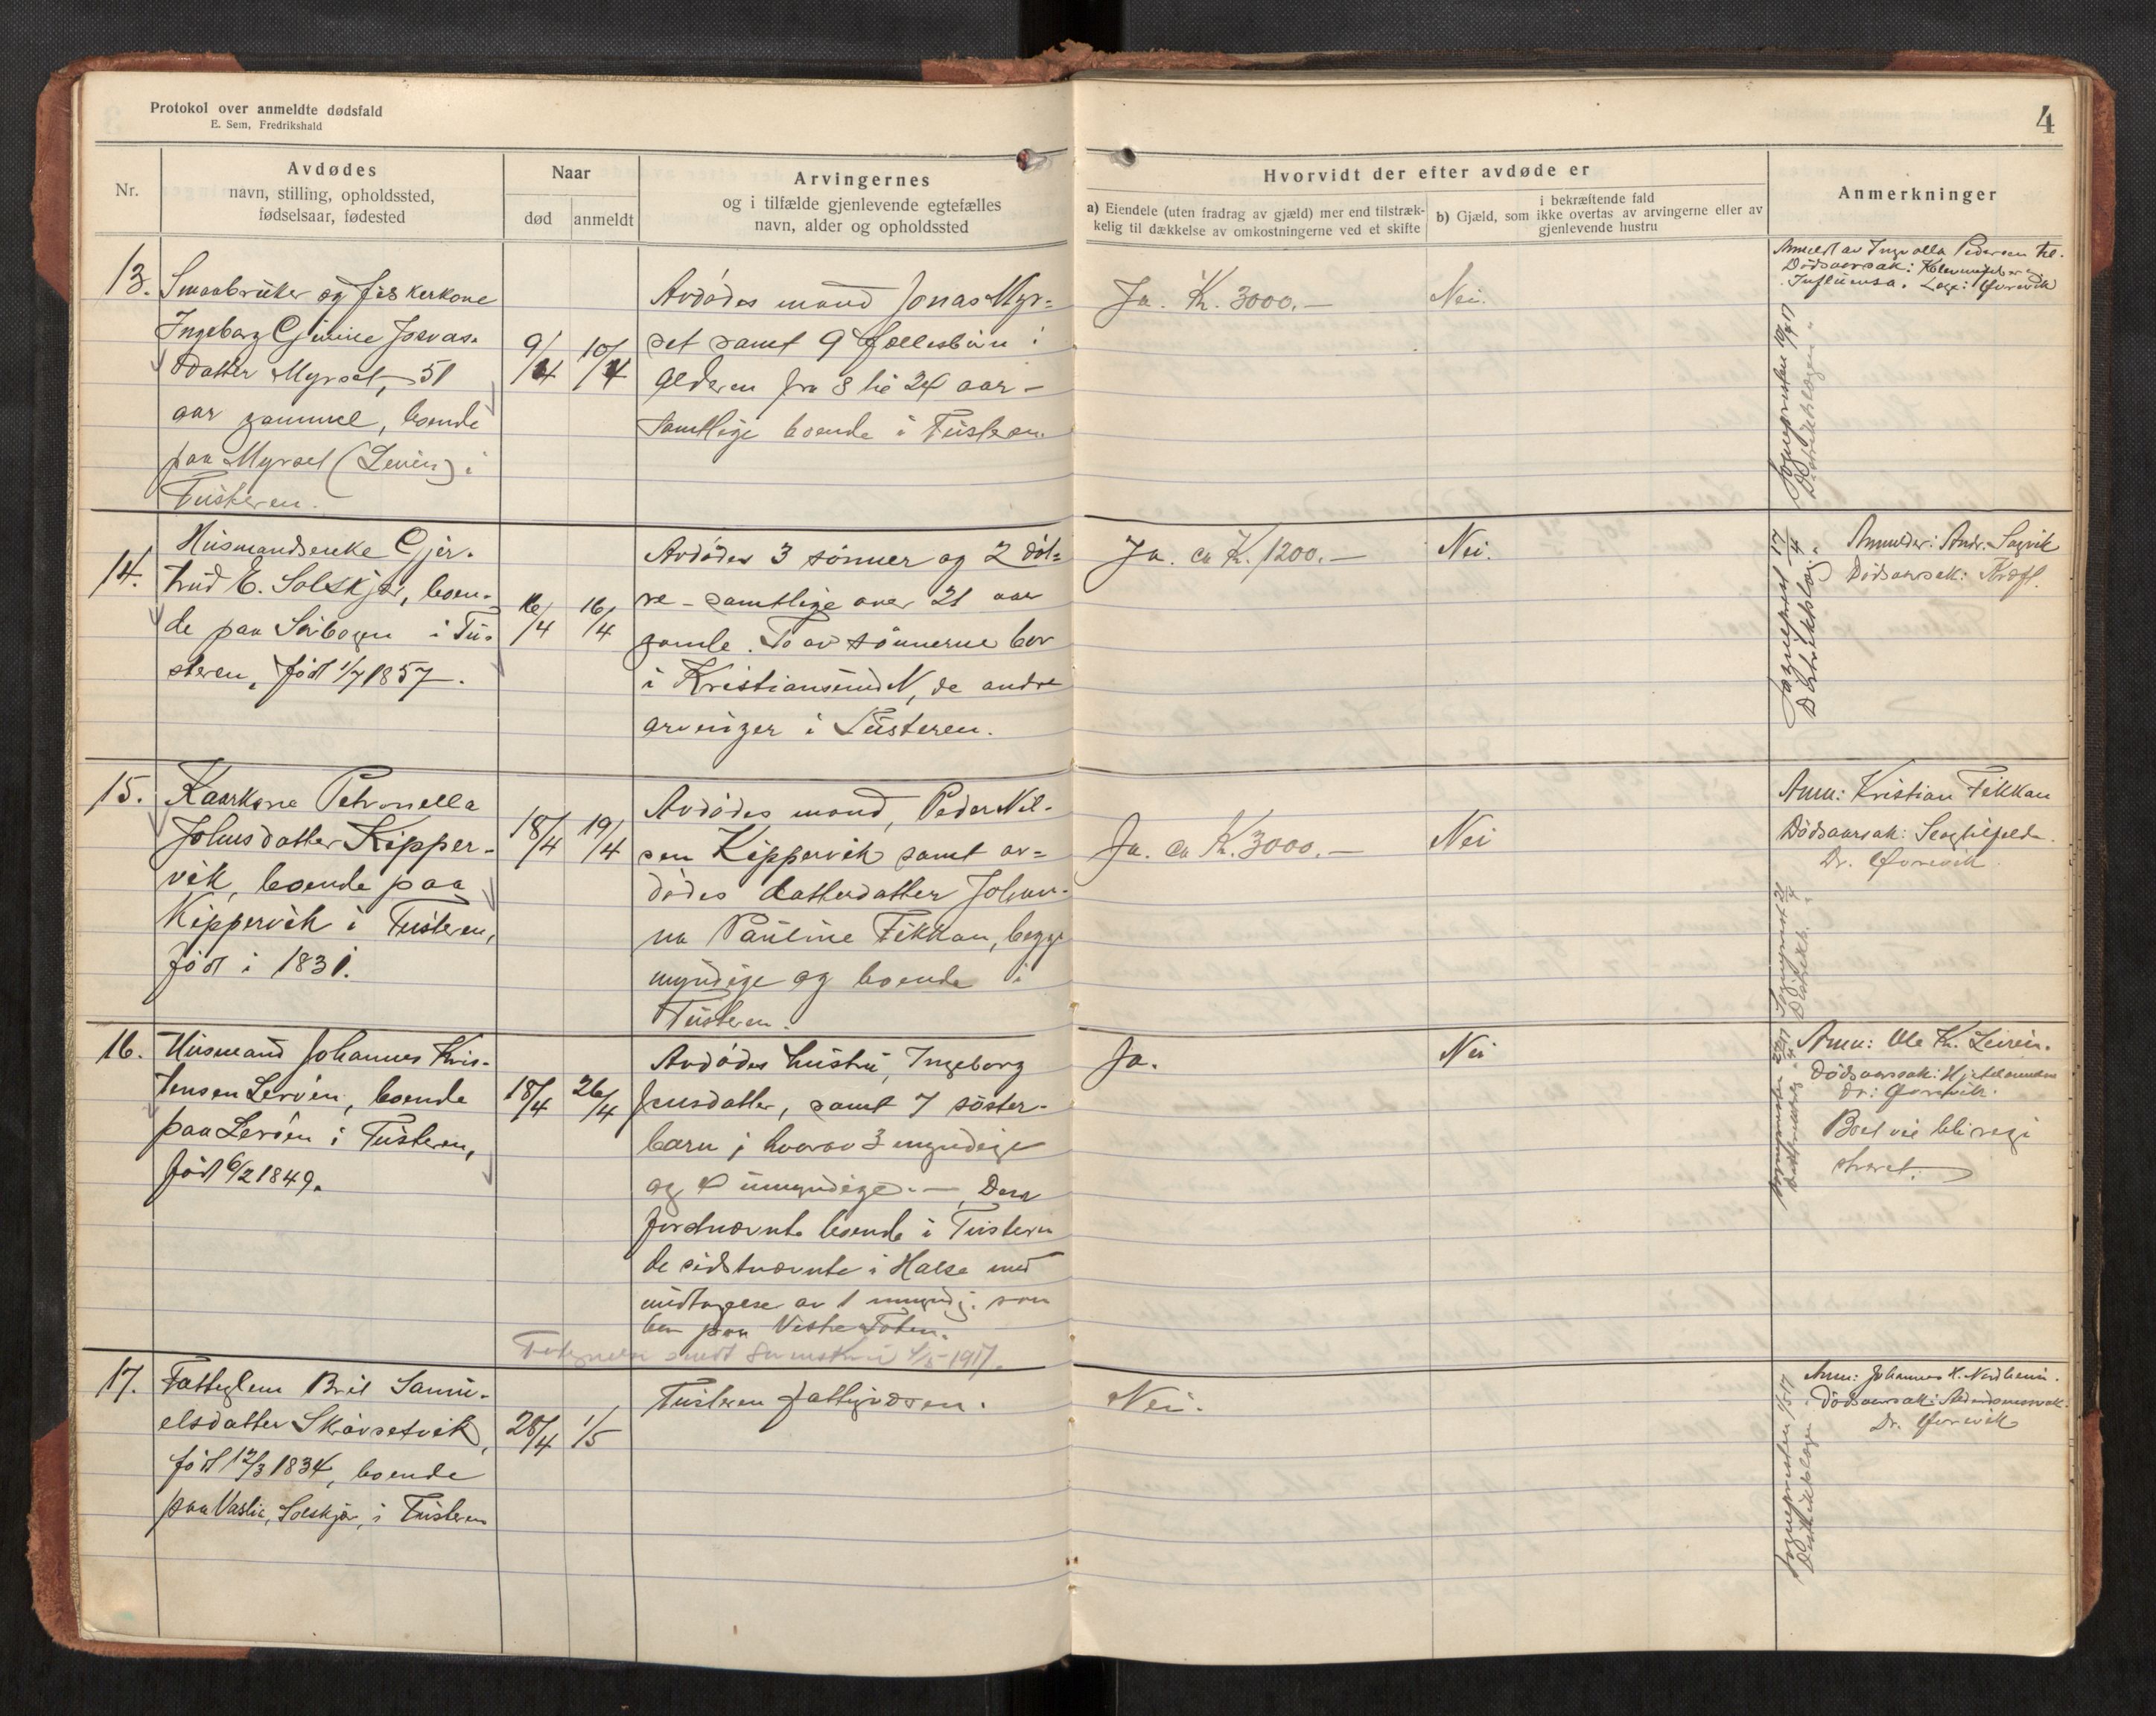 Protokol over anmeldte dødsfald
E. Sem, Fredrikshald
4
Nr.
Avdødes
navn, stilling, opholdssted,
fødselsaar, fødested
Naar
død
anmeldt
Arvingernes
og i tilfælde gjenlevende egtefælles
navn, alder og opholdssted
Hvorvidt der efter avdøde er
a) Eiendele (uten fradrag av gjæld) mer end tilstræk-
kelig til dækkelse av omkostningerne ved et skifte
i bekræftende fald
b) Gjæld, som ikke overtas av arvingerne eller av
gjenlevende hustru
Anmerkninger
13.
Smaabruker og fiskerkone
Ingeborg
datter Myrset, 51
aar gammel, boende
paa Myrset (Lerien) i
Tusteren.
9/4
10/4
Avdødes mand Jonas Myr-
set samt 9 fællesbarn i
alderen fra 8 til 24 aar -
samtlige boende i Tusteren.
Ja. Kr. 3000.-
Nei.
Anmeldt av Pedersen
Dødsaarsak:
Influensa. Læge: Qvervik
Sognepresten 10/4 17
Distriktslægen "
14.
Husmandsenke Gjer-
trud E. Solskjør, boen-
de paa Sørbogen i Tu-
steren, født 1/7 1857.
16/4
16/4
Avdødes 3 sønner og 2 døt-
re - samtlige over 21 aar
gamle. To av sønnerne bor
i Kristiansund N, de andre
arvinger i Tusteren.
Ja. ca Kr. 1200.-
Nei.
Anmelder: Andr. Sagvik
Dødsaarsak: Kræft.
Sogneprest 17/4
Distriktslæg "
15.
Kaarkone Petronella
Johnsdatter Kipper-
vik, boende paa
Kippervik i Tusteren,
født i 1831.
18/4
19/4
Avdødes mand, Peder Nil-
sen Kippervik samt av-
dødes datterdatter Johan-
na Pauline Fikkan, begge
myndige og boende i
Tusteren.
Ja. ca Kr. 3000.-
Nei
Anm: Kristian Fikkan
Dødsaarsak: Slagtilfælde.
Dr. Qvervik.
Sogneprest 21/4
Distriktsl. "
16.
Husmand Johannes Kris-
tensen Lervøen, boende
paa Lervøen i Tusteren,
født 6/2 1849.
18/4
26/4
Avdødes hustru, Ingeborg
Jensdatter, samt 7 søster-
barn, hvorav 3 myndige
og 4 umyndige. -
førstnævnte boende i Tusteren
de sidstnævnte i Halse med
undtagelse av 1 myndig. som
bor paa Vestre Toten.
sendt 4/5-1917.
Ja.
Nei
Anm: Ole K.
Dødsaarsak:
Dr: Qvervik.
Boet vil bli regi-
streret.
17.
Fattiglem Brit Samu-
elsdatter Skårsetvik,
født 12/3 1834, boende
paa Vaslia, Solskjør, i Tusteren
28/4
1/5
Tusteren fattigvæsen.
Nei.
Anm: Johannes K. Nordheim.
Dødsaarsak: Alderdomssvak.
Dr. Qvervik
Sognepresten 1/5 17
Distriktslægen "